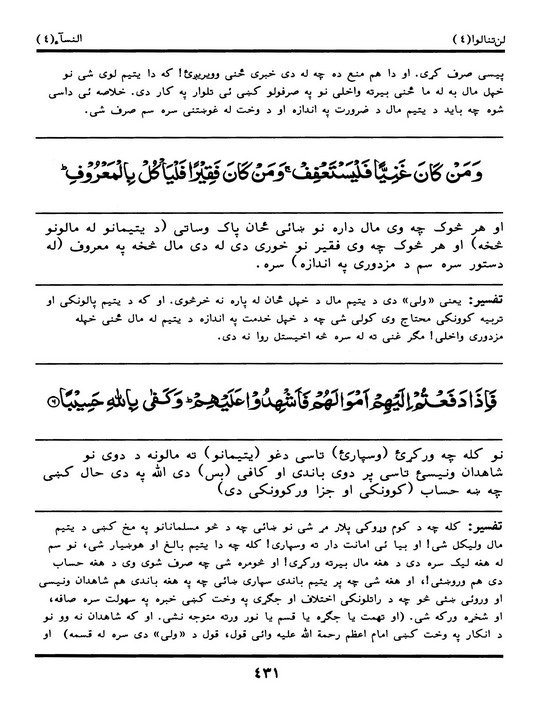 لن تنالوا(٤) النسآء(٤)
پيسې صرف کړی. او دا هم منع ده چه له دې خبرې ځنې وويريږئ! که دا يتيم لوی شی نو
خپل مال به له ما ځنې بيرته واخلی نو په صرفولو کښې ئې تلوار په کار دی. خلاصه ئې داسې
شوه چه بايد د يتيم مال د ضرورت په اندازه او د وخت له غوښتنې سره سم صرف شی.
وَمَنْ كَانَ غَنِيًّا فَلْيَسْتَعْفِفْ ۚ وَمَنْ كَانَ فَقِيْرًا فَلْيَأْكُلْ بِالْمَعْرُوْفِ ؕ
او هر څوک چه وی مال داره نو ښائی ځان پاک وساتی (د يتيمانو له مالونو
څخه) او هر څوک چه وی فقير نو خوری دی له دې مال څخه په معروف (له
دستور سره سم د مزدورۍ په اندازه) سره.
تفسير: يعنی «ولی» دې د يتيم مال د خپل ځان له پاره نه خرڅوی. او که د يتيم پالونکی او
تربيه کوونکی محتاج وی کولی شی چه د خپل خدمت په اندازه د يتيم له مال ځنې خپله
مزدوری واخلی! مګر غنی ته له سره څه اخيستل روا نه دی.
فَاِذَا دَفَعْتُمْ اِلَيْهِمْ اَمْوَالَهُمْ فَاَشْهِدُوْا عَلَيْهِمْ ؕ وَكَفٰى بِاللّٰهِ حَسِيْبًا ۝۶
نو کله چه ورکړئ (وسپارئ) تاسې دغو (يتيمانو) ته مالونه د دوی نو
شاهدان ونيسئ تاسې پر دوی باندې او کافی (بس) دی الله په دې حال کښې
چه ښه حساب (کوونکی او جزا ورکوونکی دی)
تفسير: کله چه د کوم وړوکی پلار مړ شی نو ښائی چه د څو مسلمانانو په مخ کښې د يتيم
مال وليکل شی! او بيا ئې امانت دار ته وسپاری! کله چه دا يتيم بالغ او هوښيار شی، نو سم
له هغه ليک سره دې د هغه مال بيرته ورکړی! او څومره شی چه صرف شوی وی د هغه حساب
دې هم وروښئی!، او هغه شی چه پر يتيم باندې سپاری ښائی چه په هغه باندې هم شاهدان ونيسی
او وروئې ښئی څو چه د راتلونکی اختلاف او جګړې په وخت کښې خبره په سهولت سره صافه،
او شخړه ورکه شی. (او تهمت يا جګړه يا قسم يا نور ورته متوجه نشی. او که شاهدان نه وو نو
د انکار په وخت کښې امام اعظم رحمة الله عليه وائی قول، قول د «ولی» دی سره له قسمه) او
٤٣١